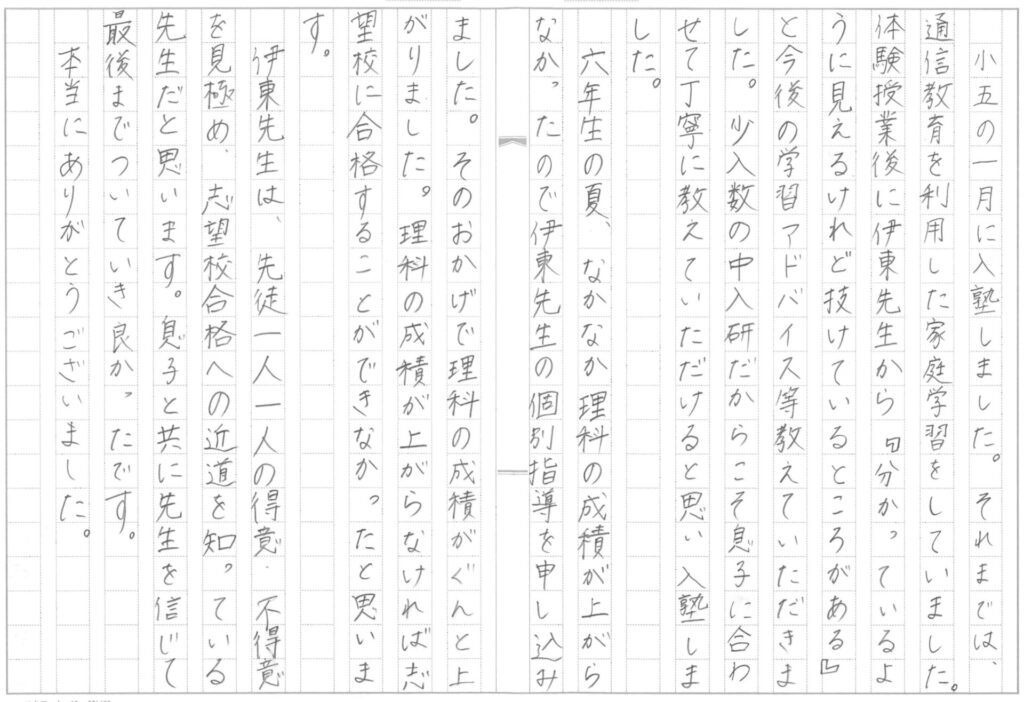 小五の一月に入塾しました。それまでは、
通信教育を利用した家庭学習をしていました。
体験授業後に伊東先生から『分かっているよ
うに見えるけれど技けているところがある』
と今後の学習アドバイス等教えていただきま
した。少入数の中入研だからこそ息子に合わ
せて丁寧に教えていただけると思い入塾しま
した。
六年生の夏、なかなか理科の成積が上がら
なかったので伊東先生の個別指導を申し込み
ました。そのおかげで理科の成積がぐんと上
がりました。理科の成積が上がらなければ志
望校に合格することができなかったと思いま
す。
伊東先生は、先徒一人一人の得意・不得意
を見極め、志望校合格への近道を知っている
先生だと思います。息子と共に先生を信じて
最後までついていき良かったです。
本当にありがとうございました。